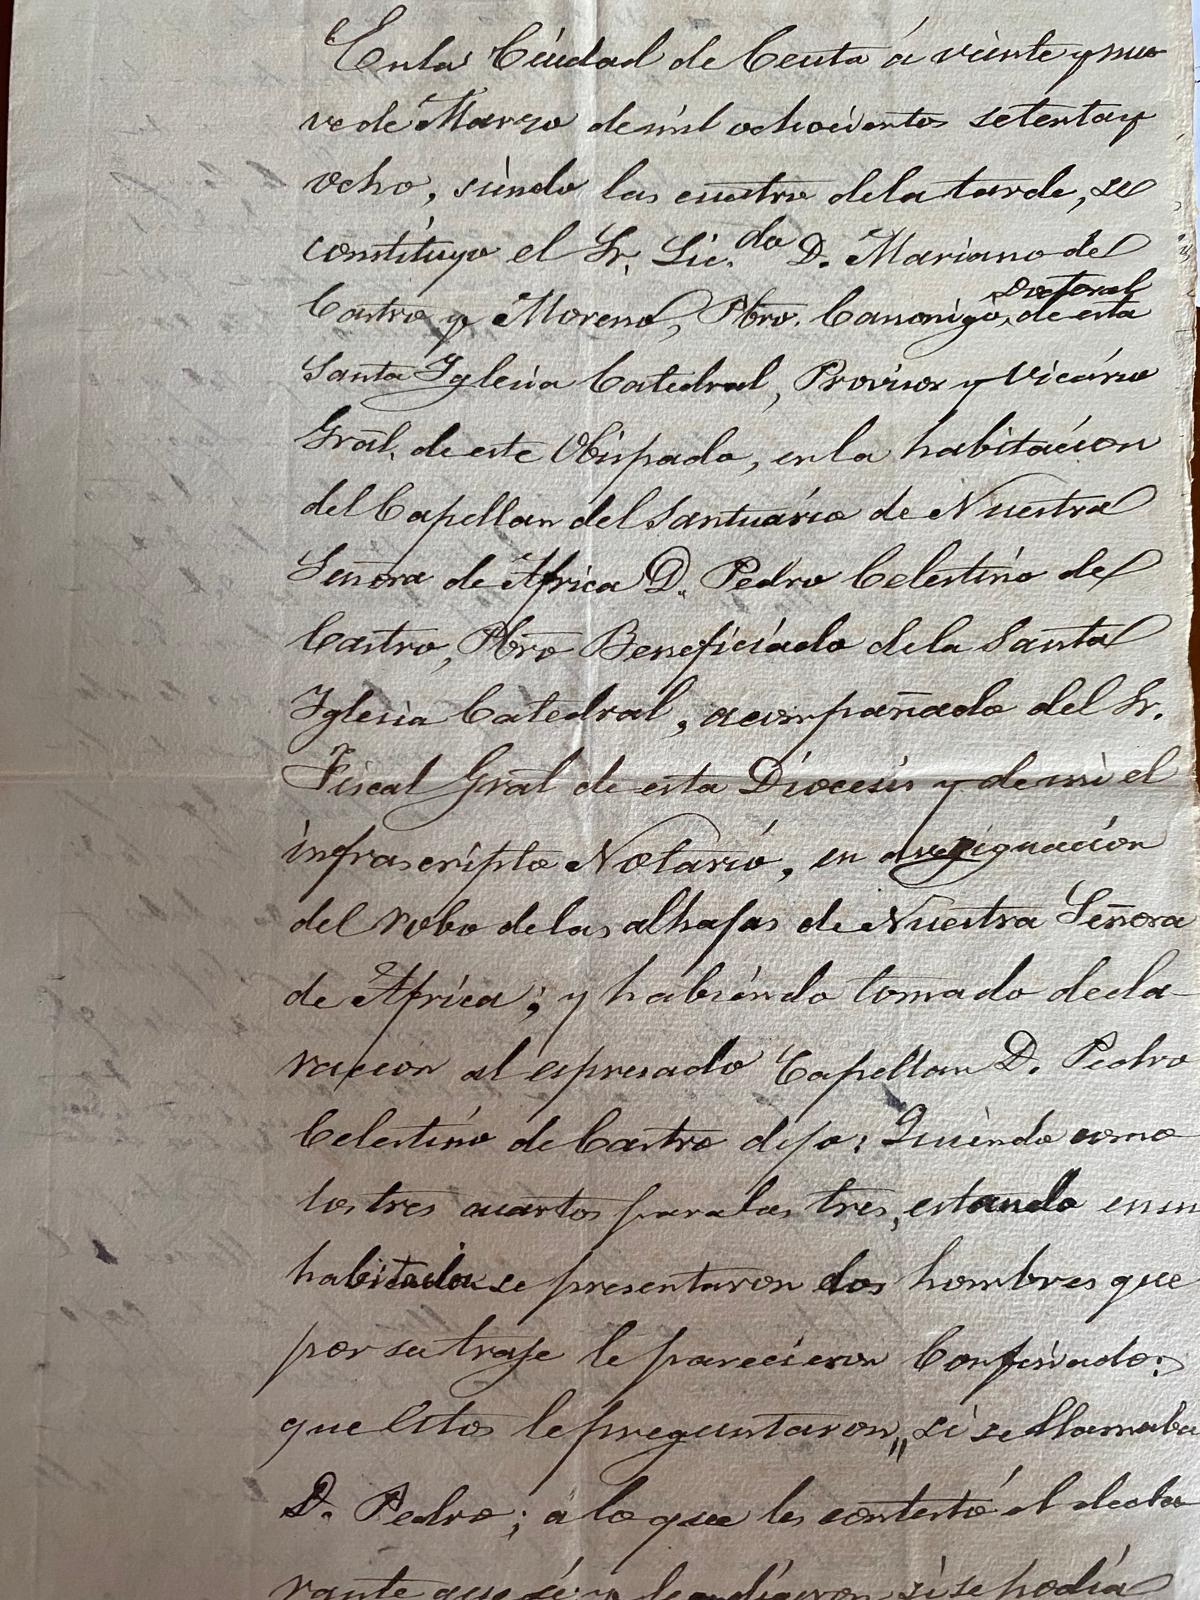 En la Ciudad de Ceuta á veinte y nue
ve de Marzo de mil ochocientos setenta y
ocho, siendo las cuatro de la tarde, se
constituyo el Sr. Lic.do D. Mariano de
Castro y Moreno, Pbro. Canonigo Doctoral de esta
Santa Iglesia Catedral, Provisor y Vicario
Gral. de este Obispado, en la habitacion
del Capellan del Santuario de Nuestra
Señora de Africa D. Pedro Celestino de
Castro, Pbro Beneficiado de la Santa
Iglesia Catedral, acompañado del Sr.
Fiscal Gral de esta Diocesis y de mi el
infrascripto Notario, en averiguacion
del robo de las alhajas de Nuestra Señora
de Africa; y habiendo tomado decla-
racion al espresado Capellan D. Pedro
Celestino de Castro dijo: Que siendo como
los tres cuartos para las tres, estando en su
habitacion se presentaron dos hombres que
por su traje le parecieron Confinados;
que Estos le preguntaron „ si se llamaba
D. Pedro; á lo que les contestó el decla
rante que si y le dijeron si se podia